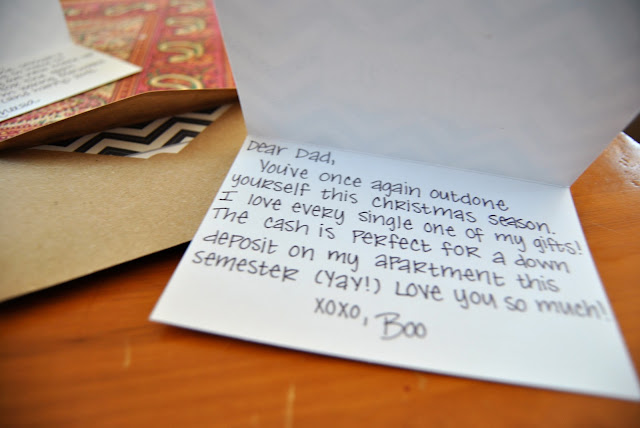 Dear Dad,
You've once again outdone
yourself this Christmas season.
I love every single one of my gifts!
The cash is perfect for a down
deposit on my apartment this
semester (yay!) Love you so much!
xoxo, Boo